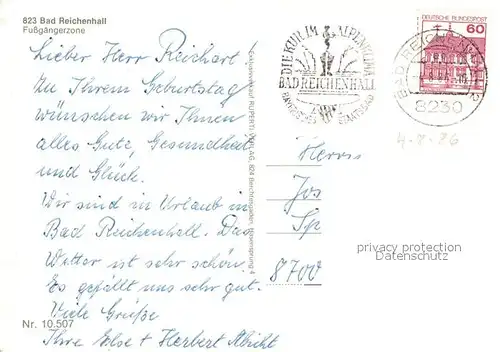 823 Bad Reichenhall
Fußgängerzone
Lieber Herr Reichart
Zu Ihrem Geburtstag
wünschen wir Ihnen
alles Gute, Gesundheit
und Glück.
Wir sind in Urlaub in
Bad Reichenhall. Das
Wetter ist sehr schön.
Es gefällt uns sehr gut.
Viele Grüße
Ihre Else + Herbert
Nr. 10.507
DIE KUR IM ALPENKLIMA
BAD REICHENHALL
BAYERISCHES STAATSBAD
DEUTSCHE BUNDESPOST
60
BAD REICHENHALL 2
8230
4-8-86
Herrn
Jos
Sp
8700
privacy protection
Datenschutz